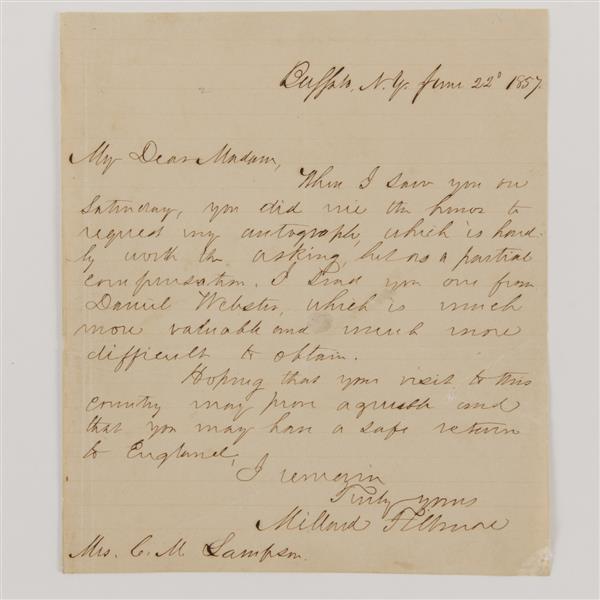 Buffalo, N.Y. June 22d 1857.
My Dear Madam,
When I saw you on
Saturday, you did me the honor to
request my autograph, which is hard-
ly worth the asking, but as a partial
compensation. I send you one from
Daniel Webster, which is much
more valuable and much more
difficult to obtain.
Hoping that your visit to this
country may prove agreeable and
that you may have a safe return
to England,
I remain
Truly yours
Millard Fillmore
Mrs. C. M. Sampson.